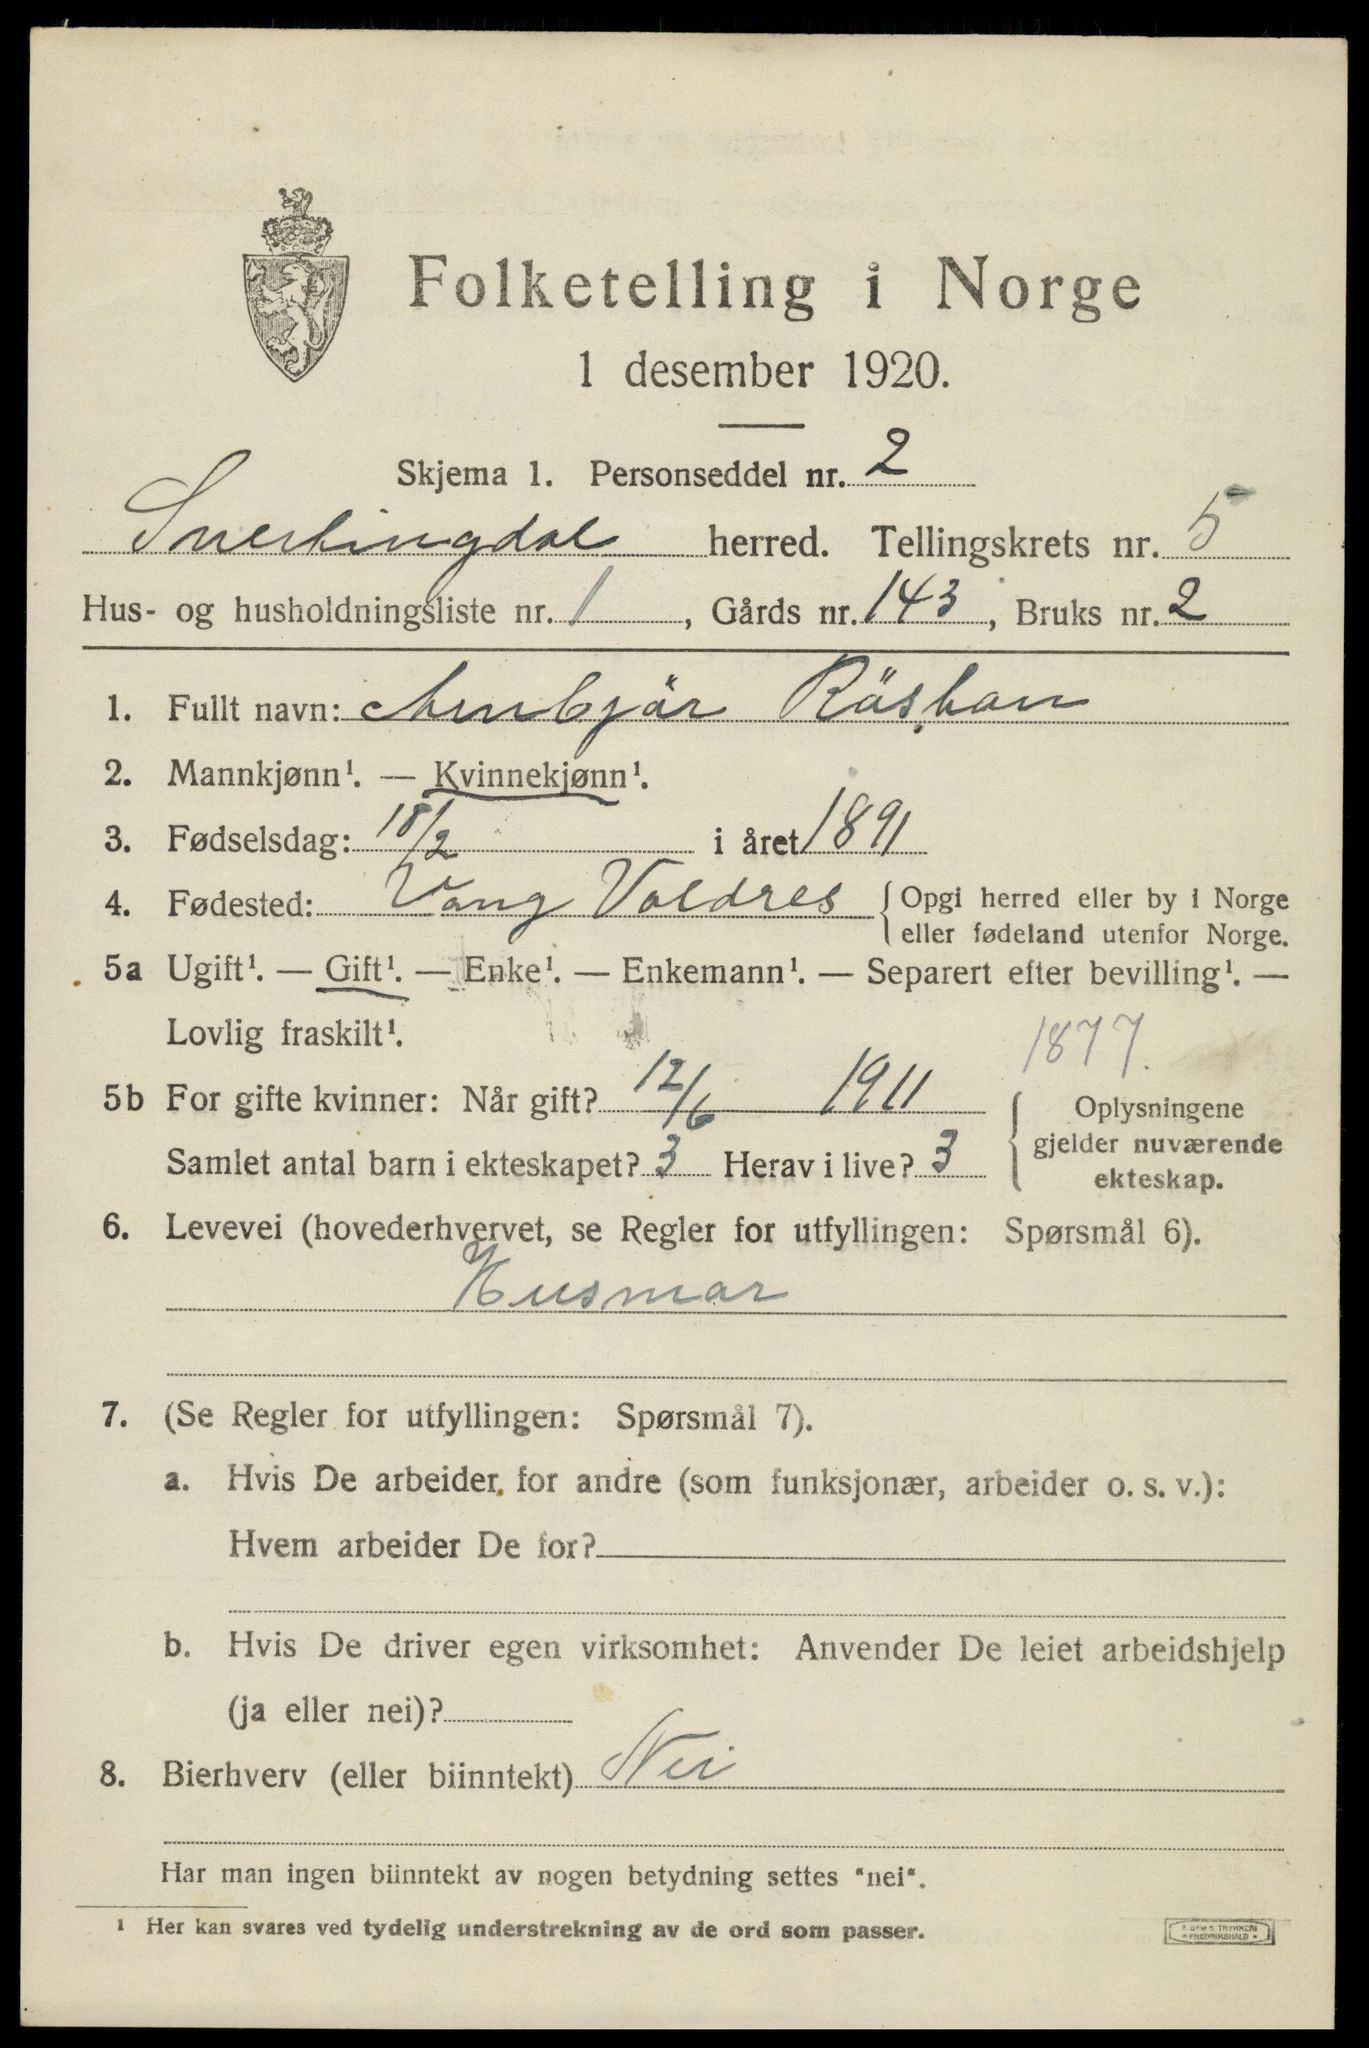 Folketelling i Norge
1 desember 1920.
Skjema 1. Personseddel nr. 2
Snertingdal herred. Tellingskrets nr. 5
Hus- og husholdningsliste nr. 1, Gårds nr. 143, Bruks nr. 2
1. Fullt navn: Ambjör
2. Mannkjønn¹. — Kvinnekjønn¹.
3. Fødselsdag: 18/2 i året 1891
4. Fødested: Vang Valdres {Opgi herred eller by i Norge
eller fødeland utenfor Norge.
5a Ugift¹. — Gift¹. — Enke¹. — Enkemann¹. — Separert efter bevilling¹. —
Lovlig fraskilt¹.
1877.
5b For gifte kvinner: Når gift? 12/6 1911
Samlet antal barn i ekteskapet? 3 Herav i live? 3
{Oplysningene
gjelder nuværende
ekteskap.
6. Levevei (hovederhvervet, se Regler for utfyllingen: Spørsmål 6).
Husmor
7. (Se Regler for utfyllingen: Spørsmål 7).
a. Hvis De arbeider for andre (som funksjonær, arbeider o. s. v.):
Hvem arbeider De for?
b. Hvis De driver egen virksomhet: Anvender De leiet arbeidshjelp
(ja eller nei)?
8. Bierhverv (eller biinntekt) Nei
Har man ingen biinntekt av nogen betydning settes "nei".
¹ Her kan svares ved tydelig understrekning av de ord som passer.
TRYKKERI
FREDRIKSHALD